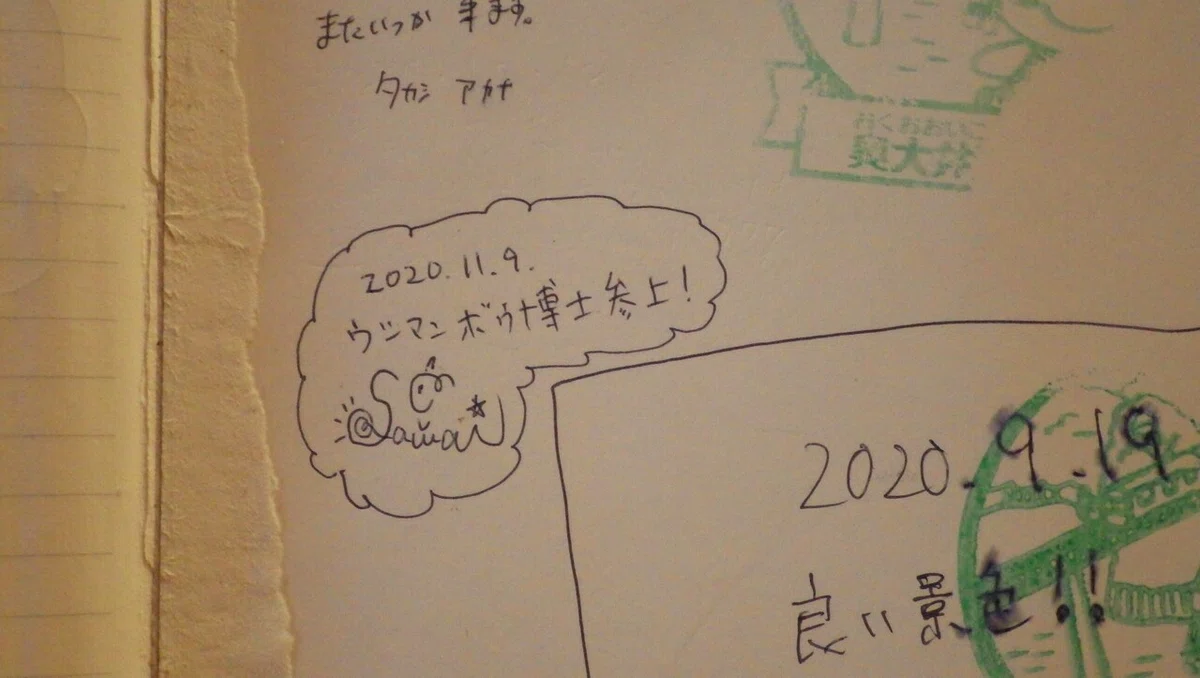 またいつか 来ます。
タカシ アカナ
おくおおいこ
奥大井
2020.11.9.
ウシマンボウナ博士参上!
Sawai
2020.9.19
良い景色!!